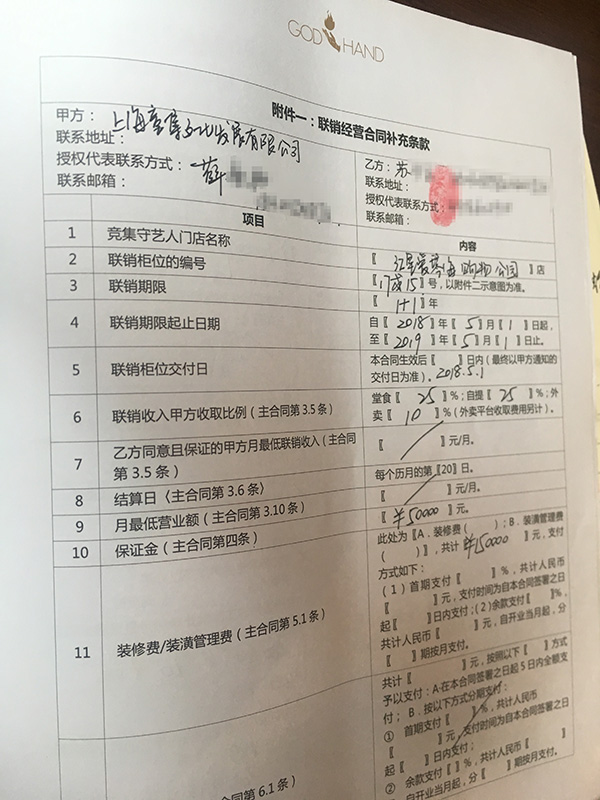 GOD HAND
附件一：联销经营合同补充条款
甲方：上海竞集文化发展有限公司
联系地址：
授权代表联系方式：薛
联系邮箱：
乙方：苏
联系地址：
授权代表联系方式：
联系邮箱：
项目 内容
1 竞集守艺人门店名称 【江星爱琴海购物公园】店
2 联销柜位的编号 【15】号，以附件二示意图为准。
3 联销期限 【1+1】年
4 联销期限起止日期 自【2018】年【5】月【1】日起，
至【2019】年【5】月【1】日止。
5 联销柜位交付日 本合同生效后【 】日内（最终以甲方通知的
交付日为准）。2018.5.1
6 联销收入甲方收取比例（主合同第3.5条） 堂食【25】%；自提【25】%；外
卖【10】%（外卖平台收取费用另计）。
7 乙方同意且保证的甲方月最低联销收入（主合同
第3.5条） 【 】元/月。
8 结算日〈主合同第3.6条〉 每个历月的第【20】日。
9 月最低营业额（主合同第3.10条） 【 】元/月。
10 保证金（主合同第四条） 【¥50000】元。
11 装修费/装潢管理费（主合同第5.1条） 此处为【A．装修费（ ）；B．装潢管理费
（ ）】，共计【¥150000】元，支付
方式如下：
（1）首期支付【 】%，共计人民币
【 】元，支付时间为自本合同签署之日
起【 】日内支付；（2）余款支付【 】%，
共计人民币【 】元，自开业当月起，分
【 】期按月支付。
共计【 】元，按照以下【 】方式
予以支付：A·在本合同签署之日起5日内全额支
付；B．按以下方式分期支付：
① 首期支付【 】%，共计人民币
【 】元，支付时间为自本合同签署之日
起【 】日内支付；
② 余款支付【 】%，共计人民币【
】元，自开业当月起，分【 】期按月支付。
合同第6.1条）